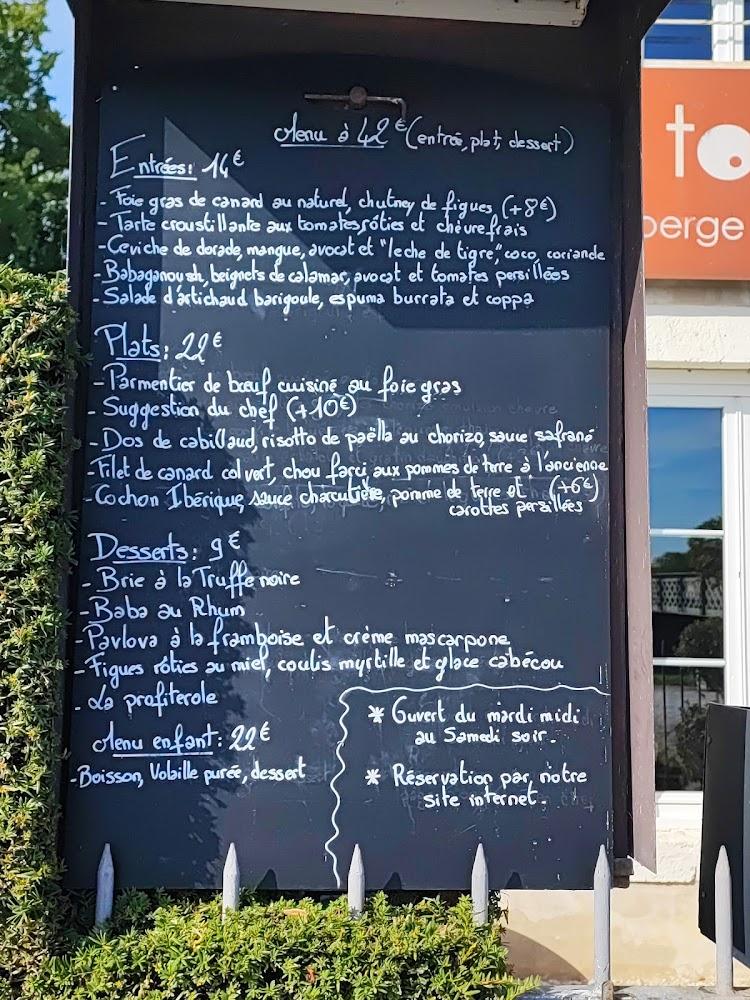 Menu à 42€ (entrée, plat, dessert)
Entrées: 14€
- Foie gras de canard au naturel, chutney de figues (+8€)
- Tarte croustillante aux tomates rôties et chèvre frais
- Ceviche de dorade, mangue, avocat et "leche de tigre", coco, coriande
- Babaganoush, beignets de calamar, avocat et tomates persillées
- Salade d'artichaud barigoule, espuma burrata et coppa
Plats: 22€
- Parmentier de bœuf cuisiné au foie gras
- Suggestion du chef (+10€)
- Dos de cabillaud, risotto de paëlla au chorizo, sauce safrané
- Filet de canard colvert, chou farci aux pommes de terre à l'ancienne
- Cochon Ibérique, sauce charcutière, pomme de terre et (+6€)
carottes persillées
Desserts: 9€
- Brie à la Truffe noire
- Baba au Rhum
- Pavlova à la framboise et crème mascarpone
- Figues rôties au miel, coulis myrtille et glace cabécou
- La profiterole
Menu enfant: 22€
- Boisson, Volaille purée, dessert
* Ouvert du mardi midi
au Samedi soir.
* Réservation par notre
site internet.
to
berge